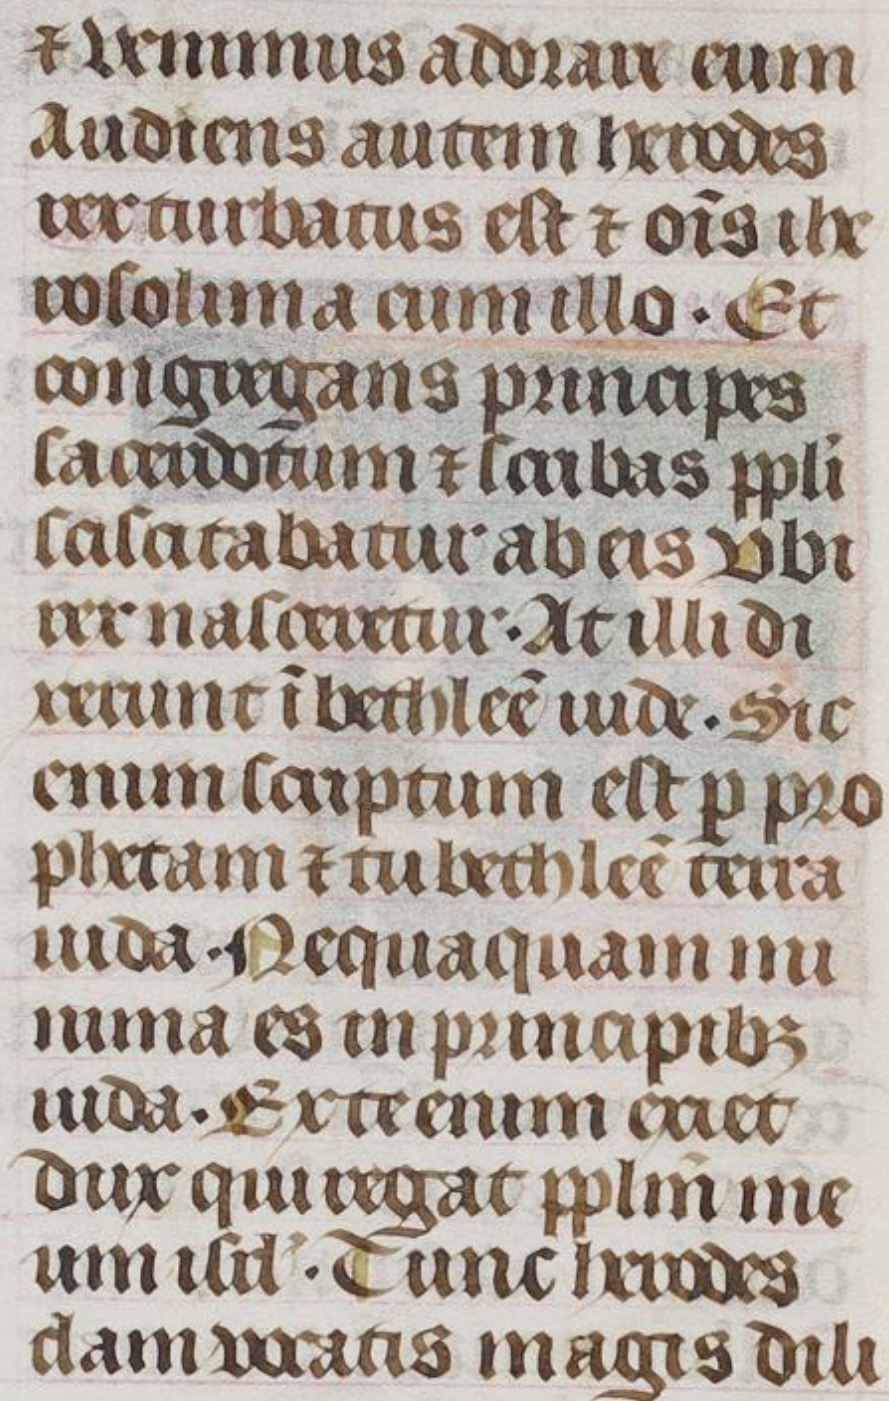 ⁊ venimus adorare eum
Audiens autem herodes
rex turbatus est ⁊ oīs ihe
rosolima cum illo · Et
congregans principes
sacerdotū um ⁊ scribas ppli
sciscitabatur ab eis Vbi
rex nasceretur · At illi di
xerunt ī bethleē iude · Sic
enim scriptum est ꝑ pro
phetam ⁊ tu bethleē terra
iuda · Nequaquam mi
nima es in principibꝫ
iuda · Ex te enim exiet
dux qui regat pplm̄ me
um isrl' · Tunc herodes
clam vocatis magis dili